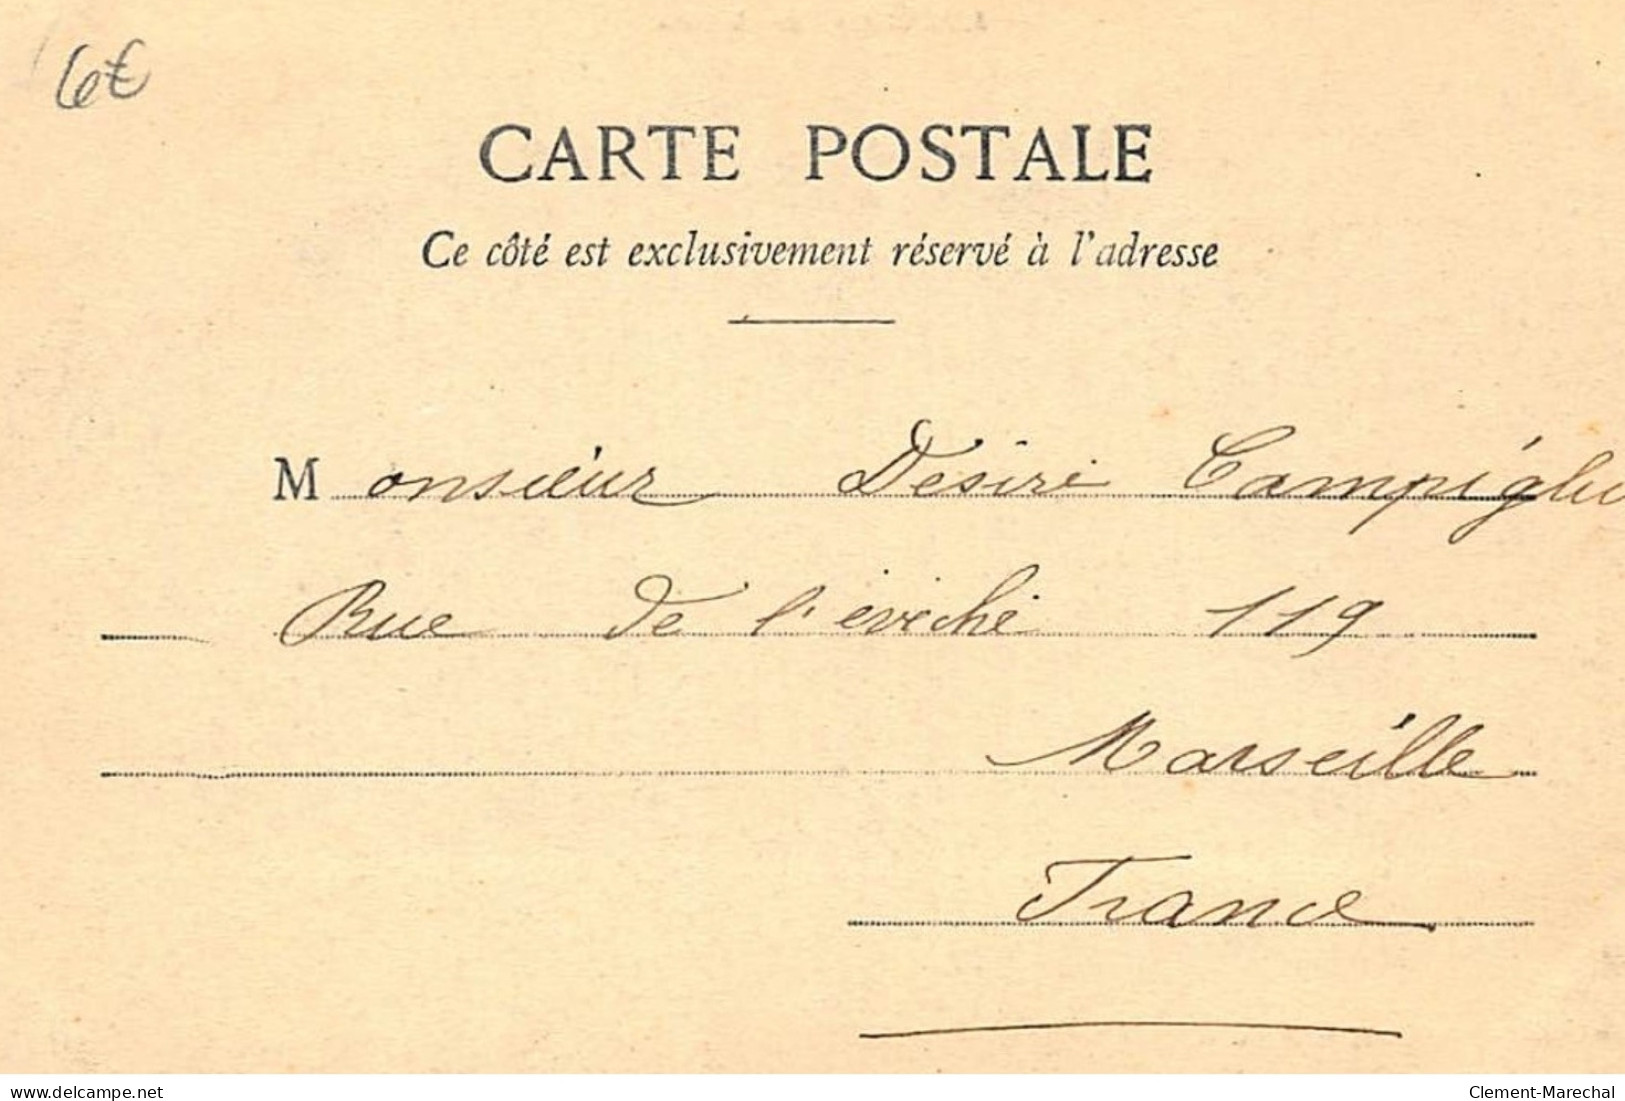 6€
CARTE POSTALE
Ce côté est exclusivement réservé à l'adresse
Monsieur Desiré
Rue de l'eveché 119
Marseille
France
delcampe.net
Clement-Marechal